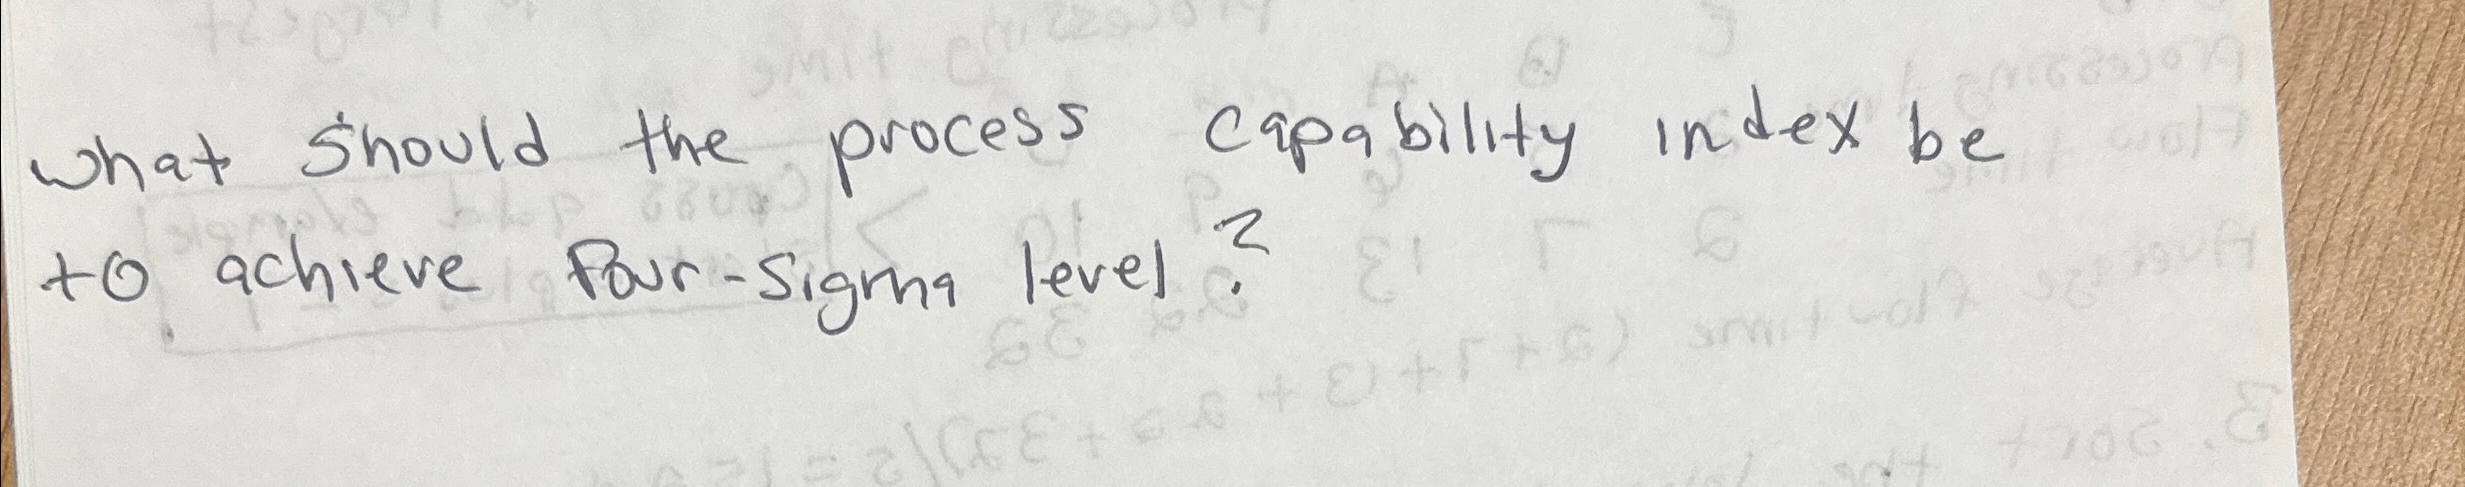 what should the process capability index be
to achieve four-sigma level?